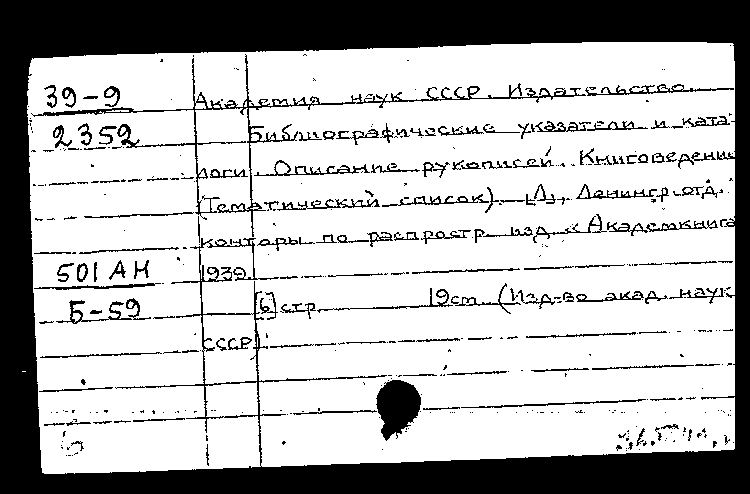 39-9 Академия наук СССР. Издательство.
2352 Библиографические указатели и ката-
логи. Описание рукописей. Книговедение
(Тематический список). [Л], Ленингр. отд.
конторы по распростр. изд. «Академкнига
501 АН 1939.
Б-59 [6] стр. 19см. (Изд-во акад. наук
СССР).
6